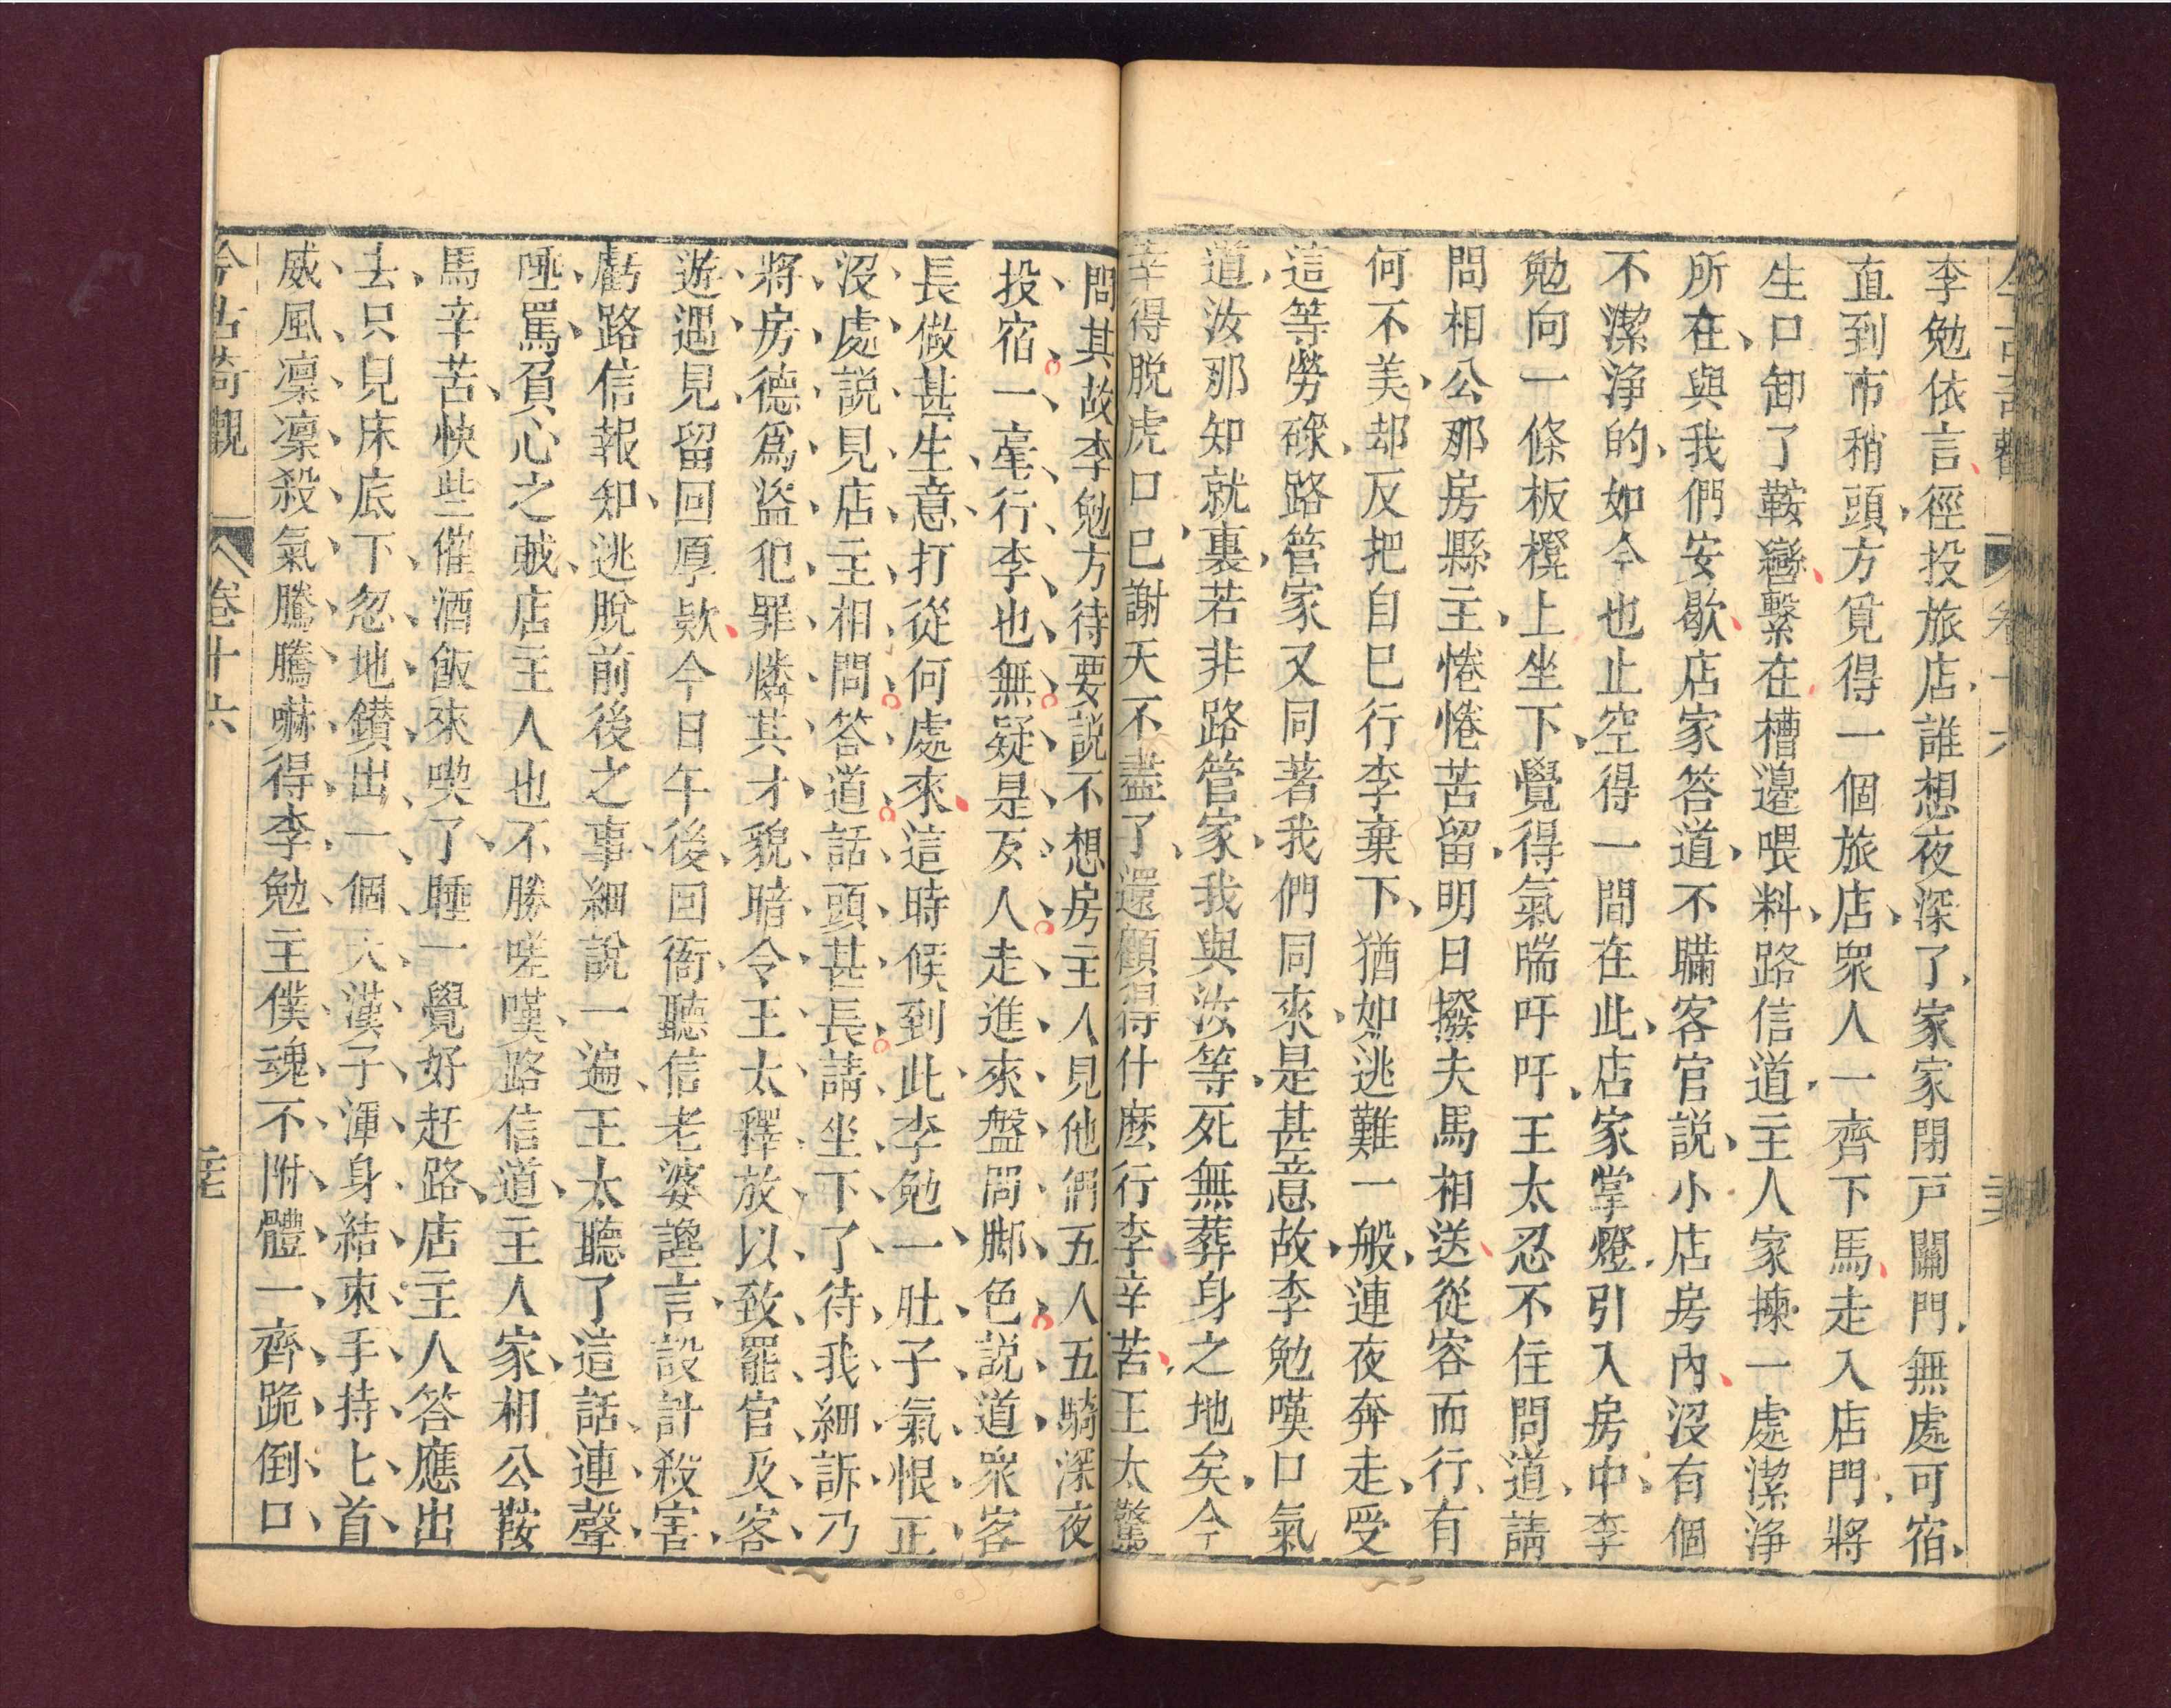 李勉依言徑投旅店誰想夜深了家家閉戸關門無處可宿
直到市稍頭方覓得一個旅店衆人一齊下馬走入店門將
生口卸了鞍轡繫在槽邊喂料路信道主人家揀一處潔淨
所在與我們安歇店家答道不瞞客官説小店房內沒有個
不潔淨的如今也止空得一間在此店家掌燈引入房中李
勉向一條板櫈上坐下覺得氣喘吁吁王太忍不住問道請
問相公那房縣主惓惓苦留明日撥夫馬相送從容而行有
何不美却反把自巳行李棄下猶如逃難一般連夜奔走受
這等勞碌路管家又同著我們同來是甚意故李勉嘆口氣
道汝那知就裏若非路管家我與汝等死無葬身之地矣今
幸得脫虎口巳謝天不盡了還顧得什麽行李辛苦王太驚
問其故李勉方待要説不想房主人見他們五人五騎深夜
投宿一毫行李也無疑是歹人走進來盤問脚色説道衆客
長做甚生意打從何處來這時候到此李勉一肚子氣恨正
沒處説見店主相問答道話頭甚長請坐下了待我細訴乃
將房德爲盜犯罪憐其才貌暗令王太釋放以致罷官及客
遊遇見留回厚欵今日午後回衙聽信老婆讒言設計殺害
虧路信報知逃脫前後之事細說一遍王太聽了這話連聲
唾罵負心之賊店主人也不勝嗟嘆路信道主人家相公鞍
馬辛苦快些催酒飯來喫了睡一覺好赶路店主人答應出
去只見床底下忽地鑚出一個大漢子渾身結束手持匕首
威風凜凜殺氣騰騰嚇得李勉主僕魂不附體一齊跪倒口
今古奇觀
卷十六